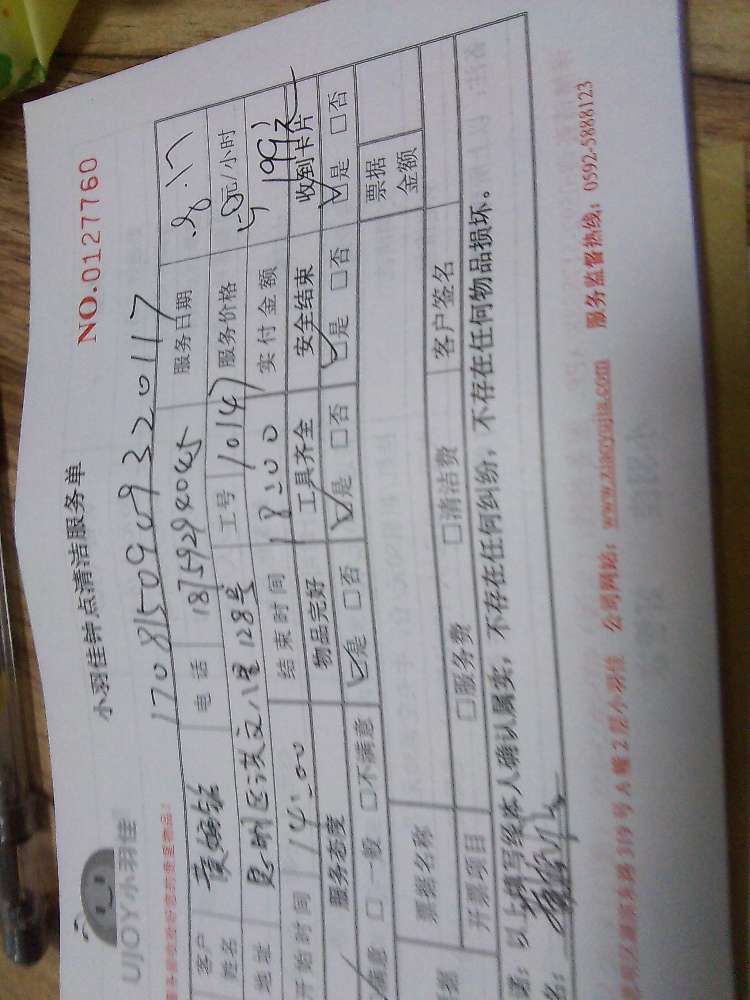 小羽佳钟点清洁服务单
NO.0127760
UJOY小羽佳
170815090932 20117
客户姓名 电话 服务日期 8.17
地址 128号 工号 10147 服务价格 元/小时
开始时间 14:00 结束时间 18:00 实付金额 199元
服务态度 物品完好 工具齐全 安全结束 收到卡片
满意 □一般 □不满意 ☑是 □否 ☑是 □否 ☑是 □否 ☑是 □否
票据名称 票据金额
开票项目 □服务费 □清洁费 客户签名
以上填写经本人确认属实，不存在任何纠纷，不存在任何物品损坏。
319号A幢2层小羽佳 公司网站：www.xiaoyujia.com 服务监督热线：0592-5888123